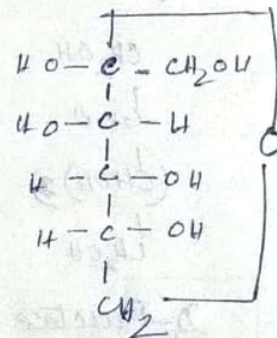 HO - C - CH2OH
HO - C - H
O
H - C - OH
H - C - OH
CH2